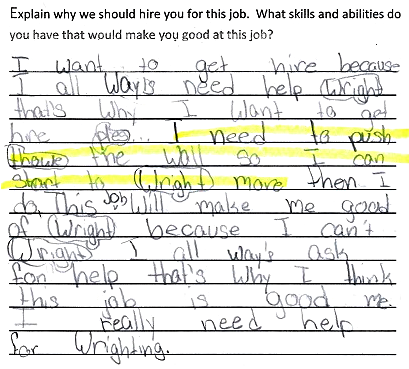 Explain why we should hire you for this job.  What skills and abilities do
you have that would make you good at this job?
I want to get hire because
I all way's need help Wright
that's Why I Want to get
hire ples... I need to push
the Wall So I can
Start to Wright more then I
do. This Job Will make me good
of Wright because I can't
Wright I all way's ask
for help that's Why I think
this job is good me.
I really need help
for Wrighting.